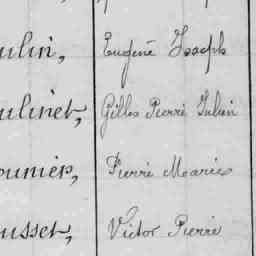 ulin, Eugène Joseph
ulinet, Gilles Pierre Julien
ounier, Pierre Marie
usset, Victor Pierre